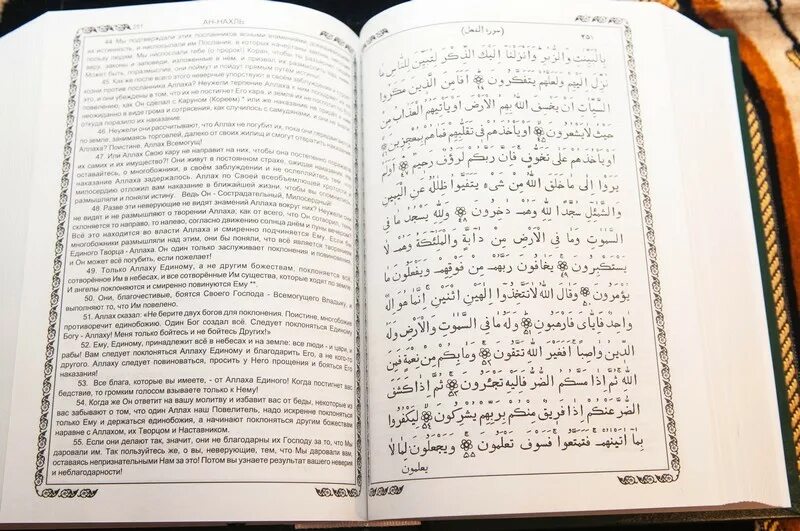 АН-НАХЛЬ
44. Мы подтверждали этих посланников ясными знамениями,
истинность, и ниспосылали им Послания, в которых начертаны
пользу людям. Мы ниспослали тебе (о пророк!) Коран, чтобы
веру, законы и заповеди, изложенные в нём, и призвал их размышлять
Может быть, поразмыслив, они поймут и пойдут прямым путём истины!
45. Как же после всего этого неверные упорствуют в своём
козни против посланника Аллаха? Неужели терпение Аллаха к ним
это, и они убеждены в том, что их не постигнет Его кара, и земля не поглотит
повелению, как Он сделал с Каруном (Кореем) * или же наказание не придёт
неожиданно в виде грома и сотрясения, как случилось с самудянами, и они
откуда поразило их наказание.
46. Неужели они рассчитывают, что Аллах не погубит их, пока они передвигаются
по земле, занимаясь торговлей, далеко от своих жилищ и смогут отвратить наказание
Аллаха? Поистине, Аллах Всемогущ!
47. Или Аллах Свою кару не направит на них, чтобы она постепенно
их самих и их имущество?! Они живут в постоянном страхе, ожидая
оставайтесь, о многобожники, в своём заблуждении и не ослепляйтесь
наказание Аллаха задержалось. Аллах по Своей всеобъемлющей
милосердию отложил вам наказание в ближайшей жизни, чтобы вы
размышляли и поняли истину. Ведь Он - Сострадательный, Милосердный!
48. Разве эти неверующие не видят знамений Аллаха вокруг них?
не видят и не размышляют о творении Аллаха: как от всего, что Он сотворил, тень
склоняется то направо, то налево, согласно движению солнца днём и луны вечером
Всё это находится во власти Аллаха и смиренно подчиняется Ему. Если бы
многобожники размышляли над этим, они бы поняли, что всё является
Единого Творца - Аллаха. Он один только заслуживает поклонения и повиновения
и Он может всё погубить, если пожелает!
49. Только Аллаху Единому, а не другим божествам, поклоняется всё
сотворённое Им в небесах, и все сотворённые Им существа, которые ходят по земле
И ангелы поклоняются и смиренно повинуются Ему **.
50. Они, благочестивые, боятся Своего Господа - Всемогущего Владыку, и
выполняют то, что Им повелено.
51. Аллах сказал: «Не берите двух богов для поклонения. Поистине, многобожие
противоречит единобожию. Один Бог создал всё. Следует поклоняться Единому
Богу - Аллаху! Меня только бойтесь и не бойтесь Других!»
52. Ему, Единому, принадлежит всё в небесах и на земле: все люди - и цари, и
рабы! Вам следует поклоняться Аллаху Единому и благодарить Его, а не кого-то
другого. Аллаху следует повиноваться, просить у Него прощения и бояться Его
наказания!
53. Все блага, которые вы имеете, - от Аллаха Единого! Когда постигнет вас
бедствие, то громким голосом взываете только к Нему!
54. Когда же Он ответит на вашу молитву и избавит вас от беды, некоторые из
вас забывают о том, что один Аллах наш Повелитель, надо искренне поклоняться
только Ему и держаться единобожия, а начинают поклоняться другим божествам
наравне с Аллахом, их Творцом и Наставником.
55. Если они делают так, значит, они не благодарны их Господу за то, что Мы
даровали им. Так пользуйтесь же, о вы, неверующие, тем, что Мы даровали вам,
оставаясь непризнательными Нам за это! Потом вы узнаете результат вашего неверия
и неблагодарности!
٢٥١
(سورة النحل)
بِالْبَيِّنٰتِ وَالزُّبُرِ وَاَنْزَلْنَٓا اِلَيْكَ الذِّكْرَ لِتُبَيِّنَ لِلنَّاسِ مَا
نُزِّلَ اِلَيْهِمْ وَلَعَلَّهُمْ يَتَفَكَّرُونَ ﴿٤٤﴾ اَفَاَمِنَ الَّذِينَ مَكَرُوا
السَّيِّاٰتِ اَنْ يَخْسِفَ اللّٰهُ بِهِمُ الْاَرْضَ اَوْ يَاْتِيَهُمُ الْعَذَابُ مِنْ
حَيْثُ لَا يَشْعُرُونَ ﴿٤٥﴾ اَوْ يَاْخُذَهُمْ فِي تَقَلُّبِهِمْ فَمَا هُمْ بِمُعْجِزِينَ ﴿٤٦﴾
اَوْ يَاْخُذَهُمْ عَلٰى تَخَوُّفٍ فَاِنَّ رَبَّكُمْ لَرَؤُفٌ رَحِيمٌ ﴿٤٧﴾ اَوَلَمْ
يَرَوْا اِلٰى مَا خَلَقَ اللّٰهُ مِنْ شَيْءٍ يَتَفَيَّؤُا ظِلَالُهُ عَنِ الْيَمِينِ
وَالشَّمَٓائِلِ سُجَّدًا لِلّٰهِ وَهُمْ دَاخِرُونَ ﴿٤٨﴾ وَلِلّٰهِ يَسْجُدُ مَا فِي
السَّمٰوَاتِ وَمَا فِي الْاَرْضِ مِنْ دَٓابَّةٍ وَالْمَلٰٓئِكَةُ وَهُمْ لَا
يَسْتَكْبِرُونَ ﴿٤٩﴾ يَخَافُونَ رَبَّهُمْ مِنْ فَوْقِهِمْ وَيَفْعَلُونَ مَا
يُؤْمَرُونَ ﴿٥٠﴾ وَقَالَ اللّٰهُ لَا تَتَّخِذُٓوا اِلٰهَيْنِ اثْنَيْنِ اِنَّمَا هُوَ اِلٰهٌ
وَاحِدٌ فَاِيَّايَ فَارْهَبُونِ ﴿٥١﴾ وَلَهُ مَا فِي السَّمٰوَاتِ وَالْاَرْضِ وَلَهُ
الدِّينُ وَاصِبًا اَفَغَيْرَ اللّٰهِ تَتَّقُونَ ﴿٥٢﴾ وَمَا بِكُمْ مِنْ نِعْمَةٍ فَمِنَ
اللّٰهِ ثُمَّ اِذَا مَسَّكُمُ الضُّرُّ فَاِلَيْهِ تَجْـَٔرُونَ ﴿٥٣﴾ ثُمَّ اِذَا كَشَفَ
الضُّرَّ عَنْكُمْ اِذَا فَرِيقٌ مِنْكُمْ بِرَبِّهِمْ يُشْرِكُونَ ﴿٥٤﴾ لِيَكْفُرُوا
بِمَٓا اٰتَيْنَاهُمْ فَتَمَتَّعُوا فَسَوْفَ تَعْلَمُونَ ﴿٥٥﴾ وَيَجْعَلُونَ لِمَا لَا
يعلمون